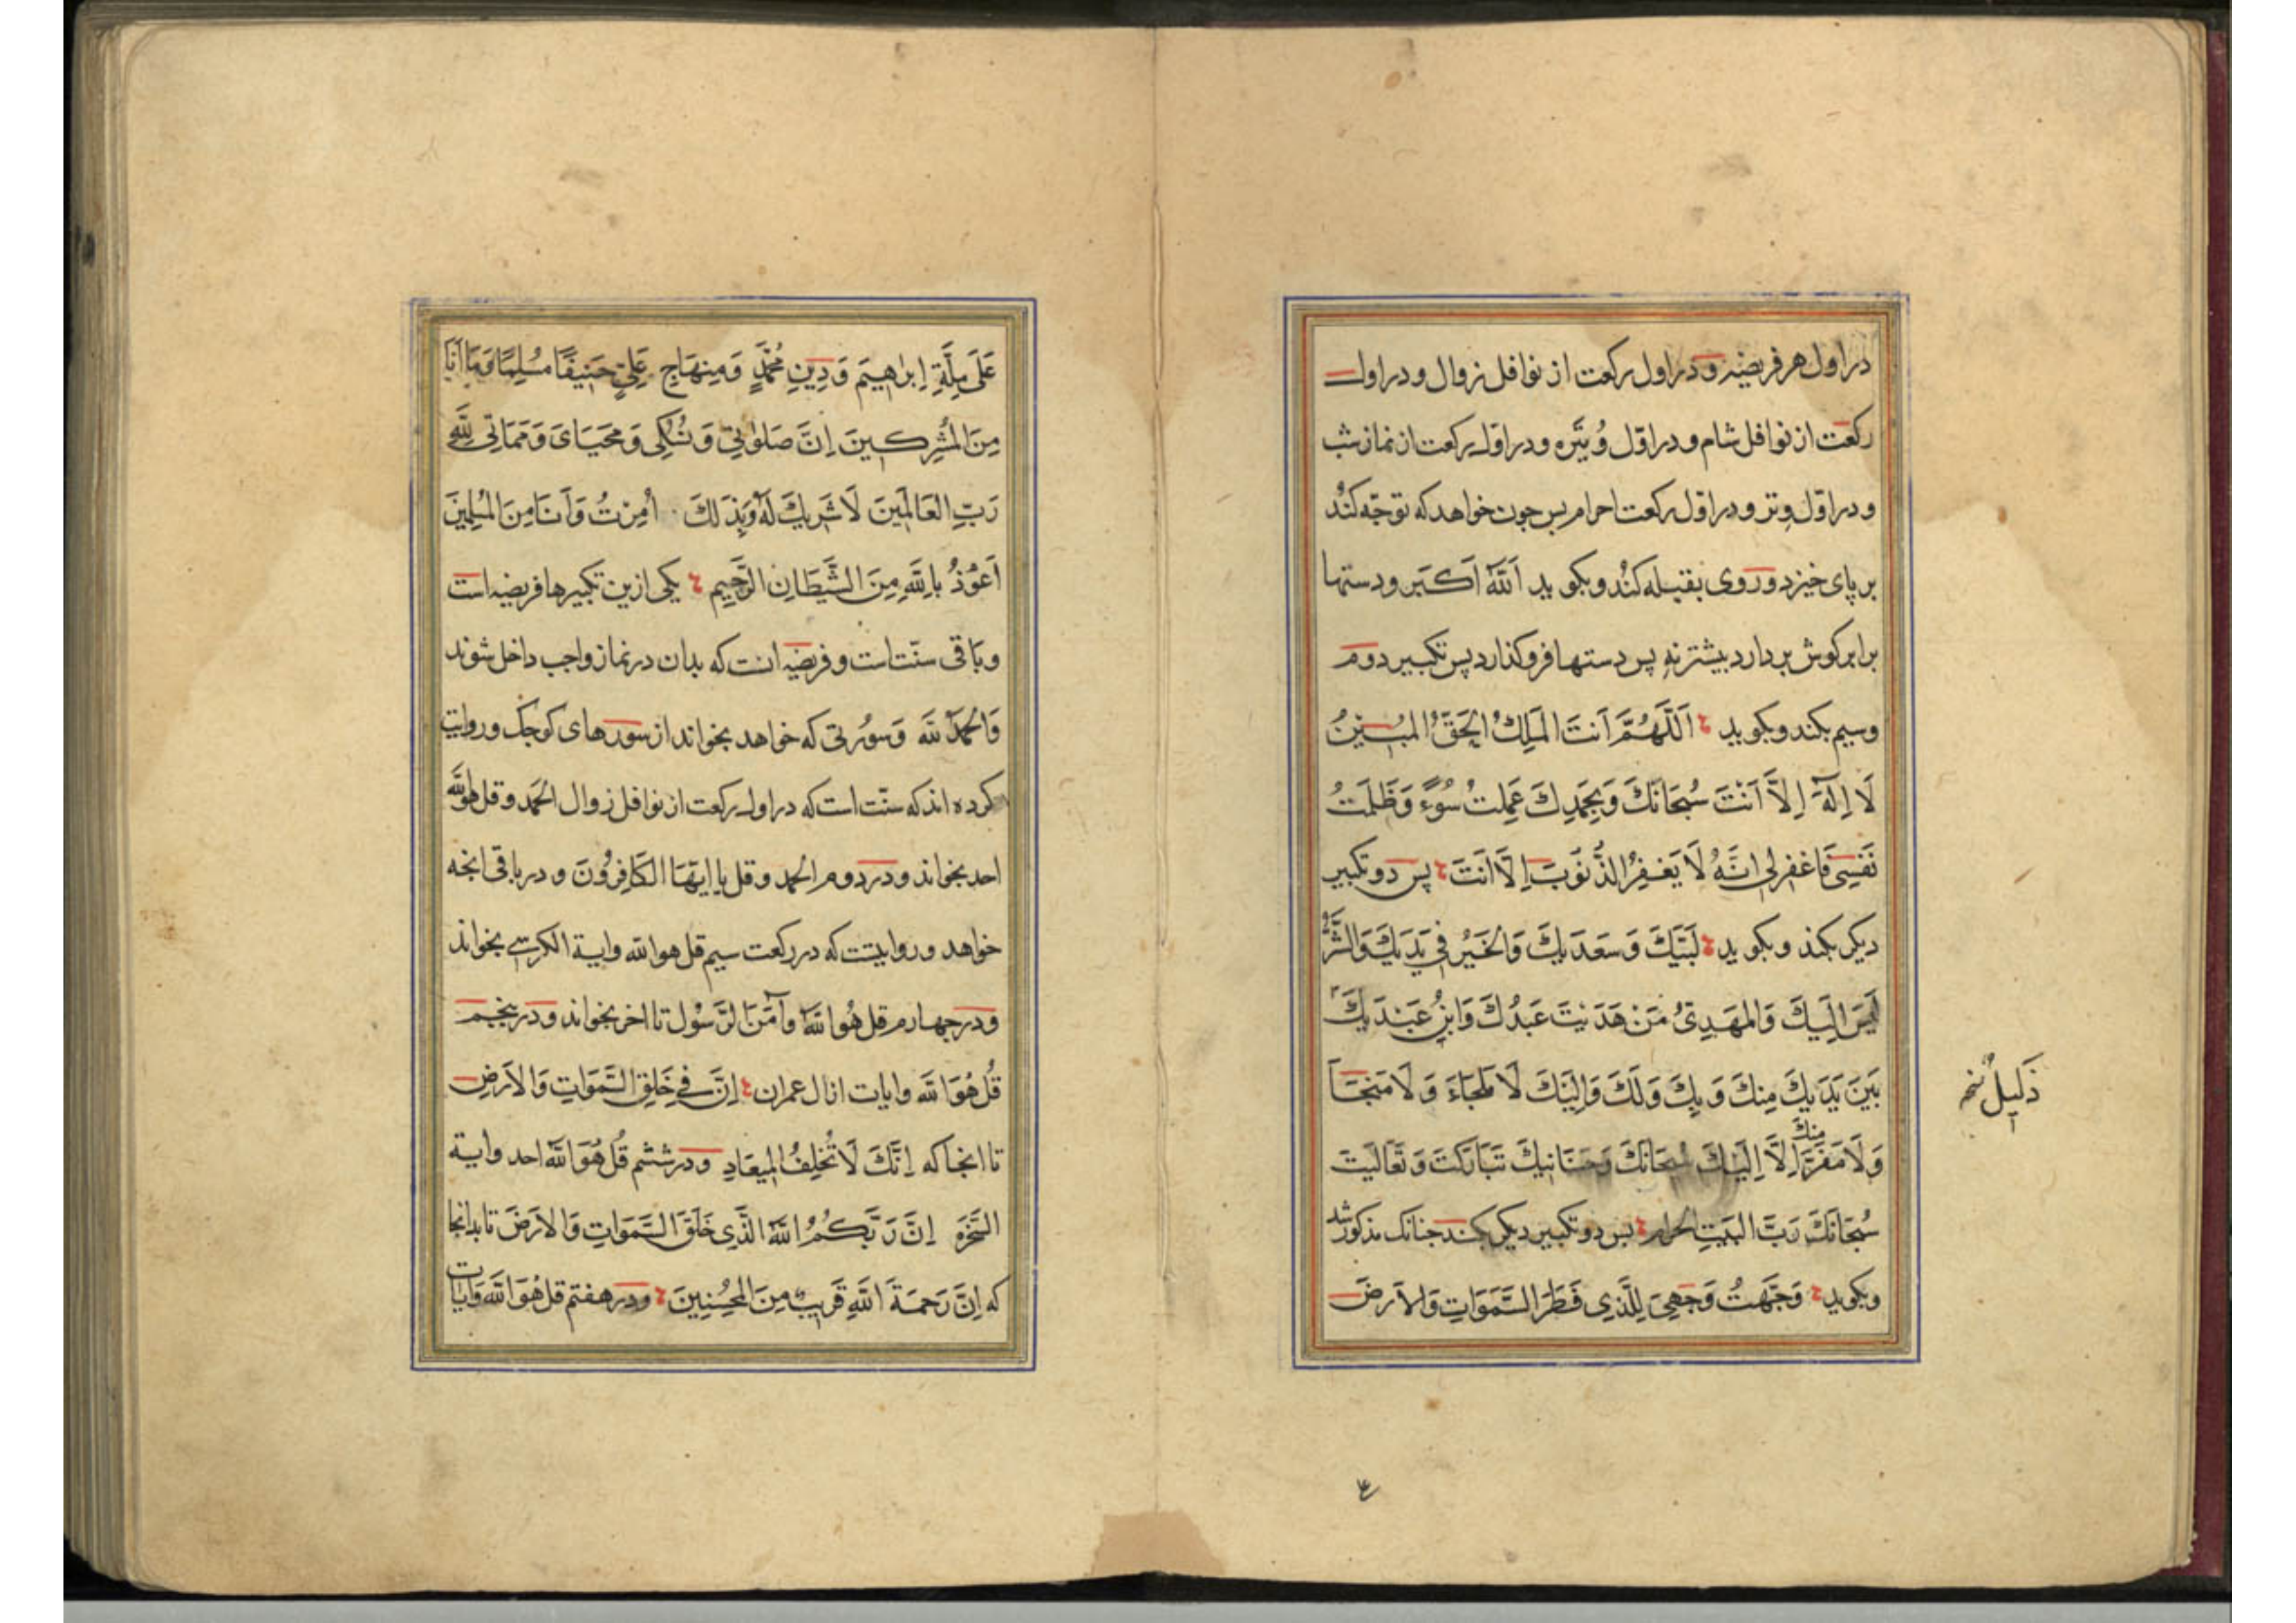 در اول هر فریضه و در اول رکعت از نوافل زوال و در اول
رکعت از نوافل شام و در اوّل وُتَیره و در اوّل رکعت از نماز شب
و در اوّل وتر و در اوّل رکعت احرام پس جون خواهد که توجّه کند
بر پای خیزد و روی بقبله کند و بکوید اَللَّهُ اَکبَر و دستها
برابر کوش بردارد بیشتر نه پس دستها فرو کذارد پس تکبیر دوم
وسیم بکند و بکوید اَللَّهُمَّ اَنتَ المَلِكُ الحَقُّ المُبینُ
لَا اِلٰهَ اِلَّا اَنْتَ سُبحَانَكَ وَبِحَمدِكَ عَمِلتُ سُوءً وَظَلَمتُ
نَفسِی فَاغفِرلی اِنَّهُ لَا یَغفِرُ الذُّنوُبَ اِلَّا اَنتَ پس دو تکبیر
دیکر بکند و بکوید لَبَّیكَ وَسَعدَیكَ وَالخَیرُ فِی یَدَیكَ وَالشَّرُّ
لَیسَ اِلَیكَ وَالمَهدِیُّ مَن هَدَیتَ عَبدُكَ وَابنُ عَبدَیكَ
ذَلیلٌ نخـ
بَینَ یَدَیكَ مِنكَ وَبِكَ وَلَكَ وَاِلَیكَ لَا مَلجَاءَ وَلَا مَنجَا
وَلَا مَفَرَّ مِنكَ اِلَّا اِلَیكَ سُبحَانَكَ وَحَنَانَیكَ تَبَارَکتَ وَتَعَالَیتَ
سُبحَانَكَ رَبَّ البَیتِ الحَرام پس دو تکبیر دیکر بکند جنانک مذکور شد
وبکوید وَجَّهتُ وَجهِیَ لِلَّذِی فَطَرَ السَّمَوَاتِ وَالاَرضَ
عَلَی مِلَّةِ اِبرٰاهیمَ وَدِینِ مُحَمَّدٍ وَمِنهَاجِ عَلِیٍّ حَنِیفًا مُسلِمًا وَمَا اَنَا
مِنَ المُشرِکینَ اِنَّ صَلوٰتِی وَنُسُکِی وَمَحیَایَ وَمَمَاتی لِلَّهِ
رَبِّ العَالَمینَ لَا شَرِیكَ لَهُ وَبِذَلِكَ اُمِرْتُ وَاَنَا مِنَ المُسلِمینَ
اَعوُذُ بِاللَّهِ مِنَ الشَّیطَانِ الرَّجیمِ یکی ازین تکبیرها فریضه است
وباقی سنّت است و فریضه انست که بدان در نماز واجب داخل شوند
وَالحَمدُ لِلّهِ وَسوُرتی که خواهد بخواند از سورهای کوجک وروایت
کرده اند که سنّت است که در اول رکعت از نوافل زوال الحَمد وقل هو اللَّه
احد بخواند و در دوم الحمد وقل یا ایهَا الکَافِروُنَ و در باقی انجه
خواهد و روایتست که در رکعت سیم قل هو الله وایة الکرسی بخواند
ودر جهارم قل هُوَ اللَّه وآمَنَ الرَّسوُل تا اخر بخواند و در پنجم
قُل هُوَ اللَّه وایات ال عمران اِنَّ فی خَلقِ السَّمَوَاتِ وَالاَرضِ
تا انجا که اِنَّكَ لَا تُخلِفُ المِیعَادِ و در ششم قُل هُوَ اللَّه احد وایة
السَّخرَه اِنَّ رَبَّکُمُ اللَّهُ الَّذِی خَلَقَ السَّمَوَاتِ وَالاَرضَ تا بدانجا
که اِنَّ رَحمَةَ اللَّهِ قَرِیبٌ مِنَ المُحسِنِینَ و در هفتم قل هُوَ اللَّه وَایات